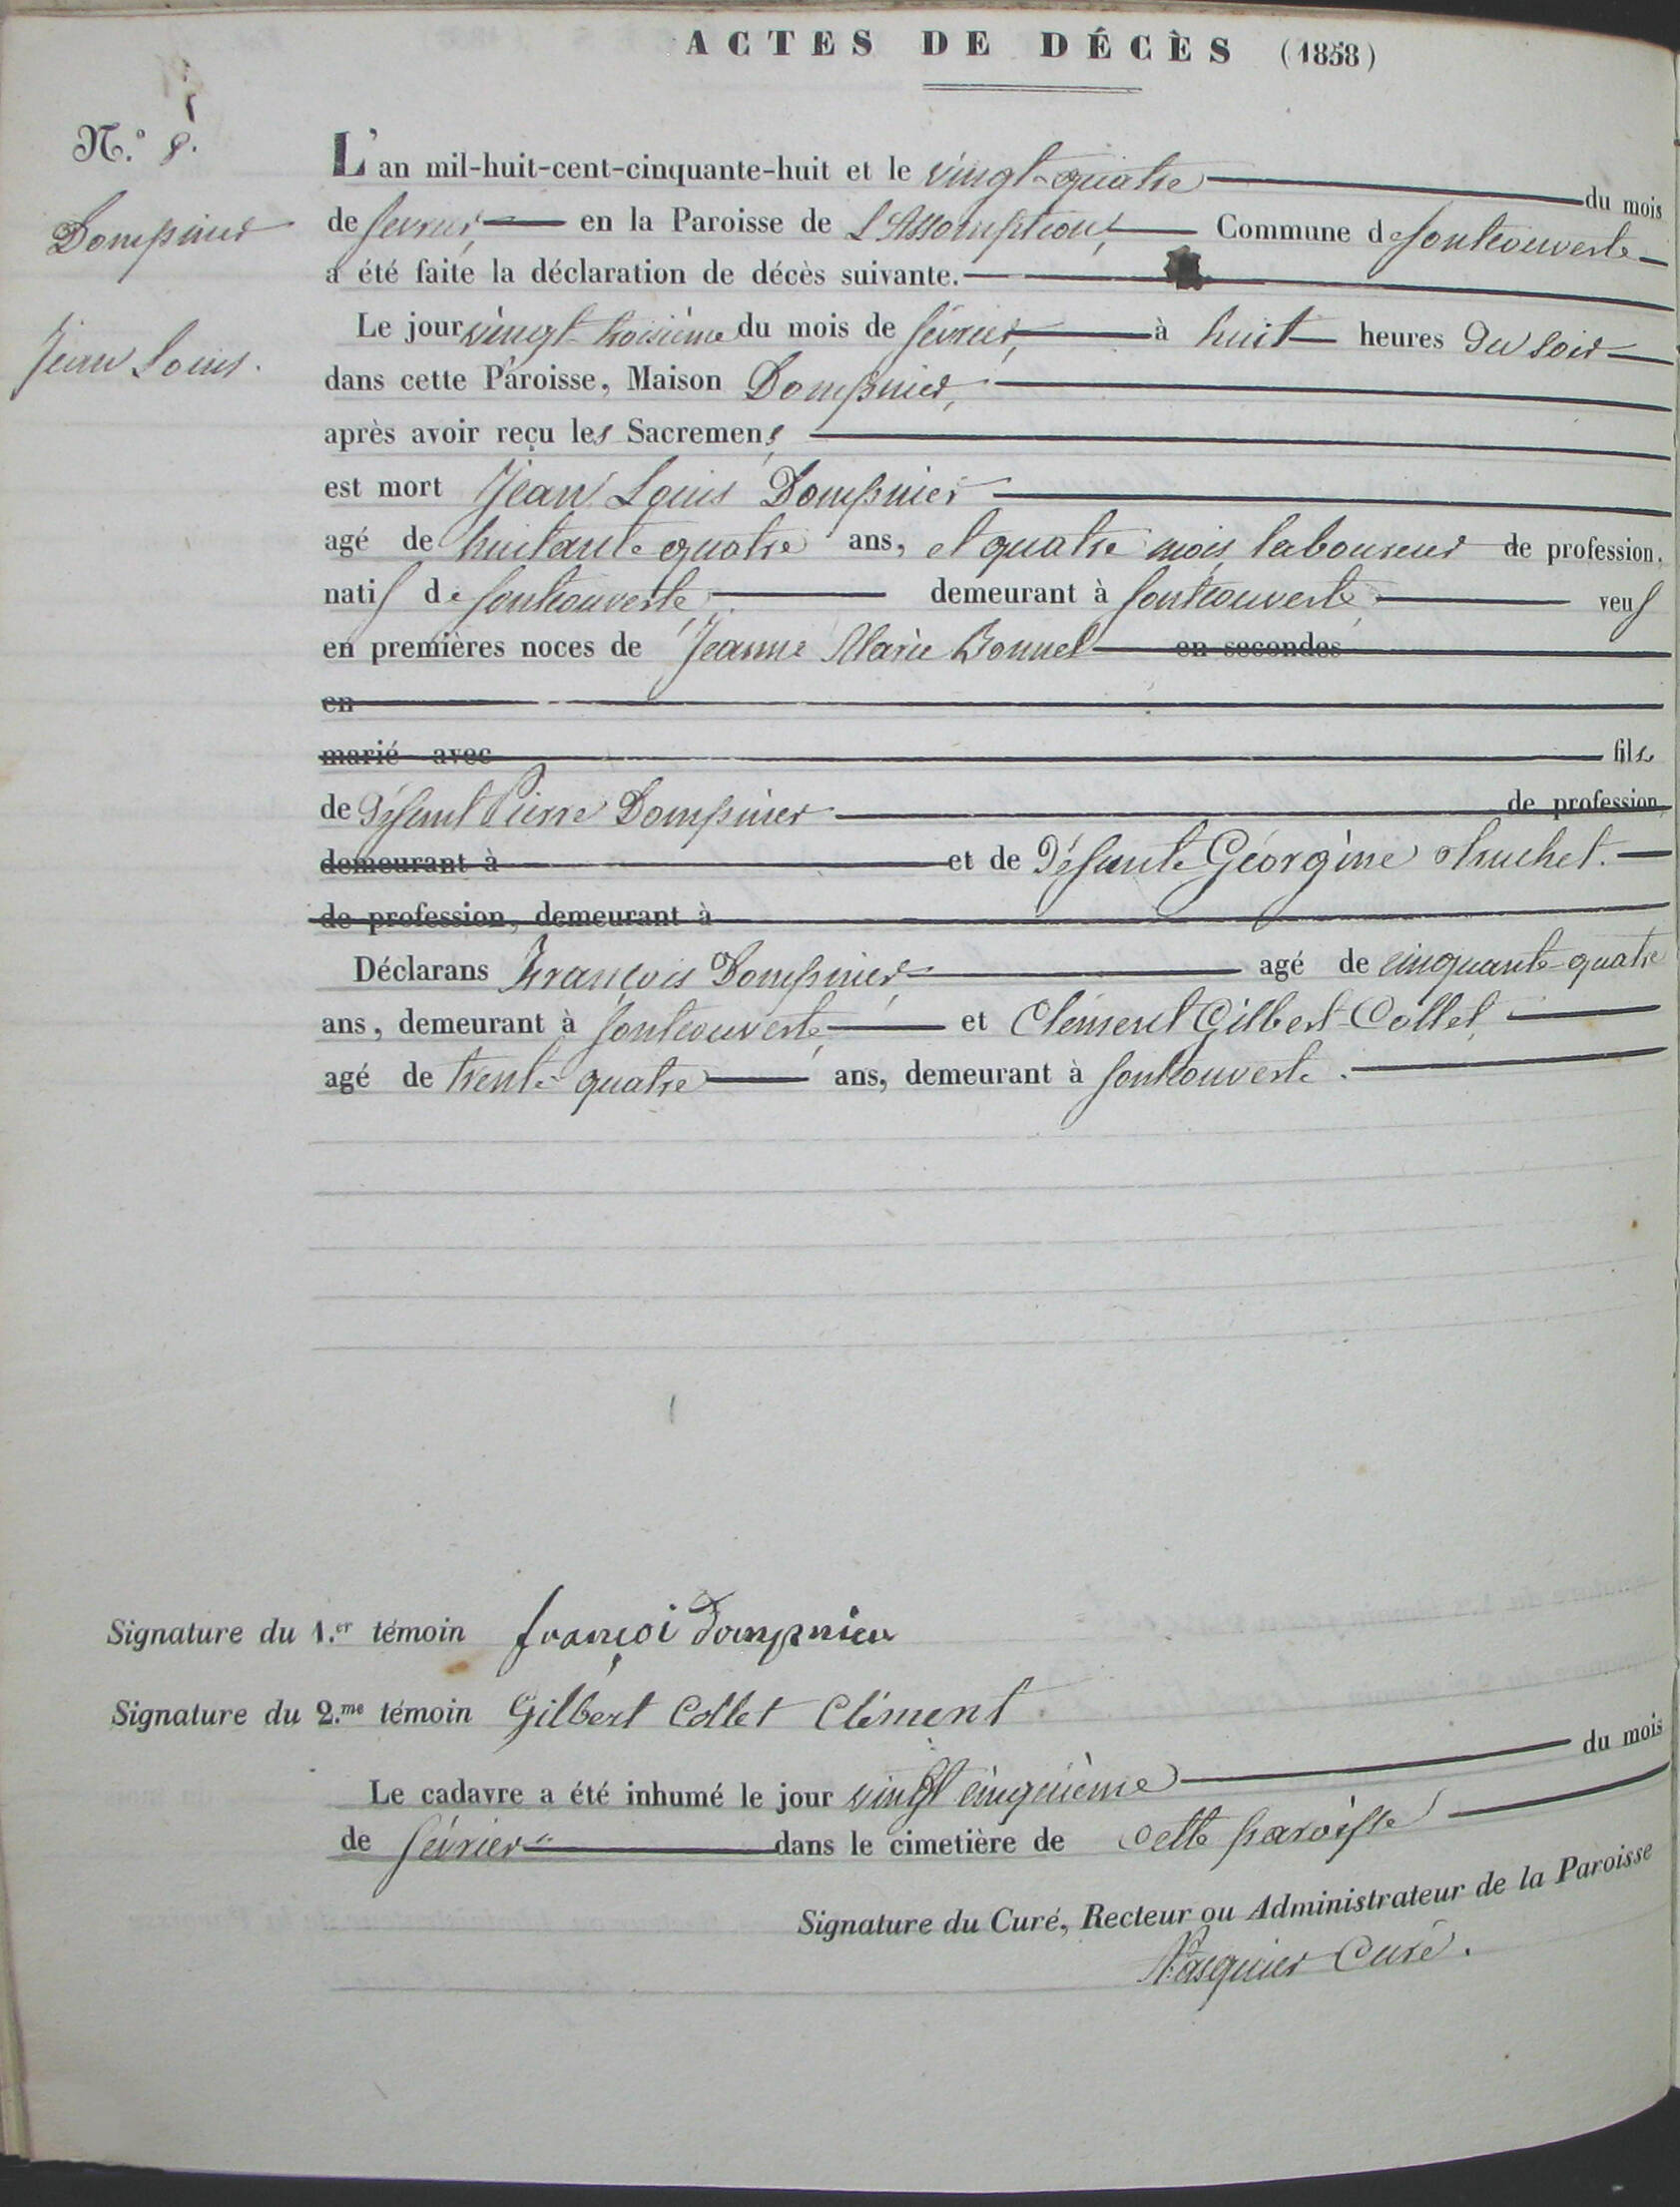 ACTES DE DÉCÈS (1858)
N.° 8.
Dompnier
Jean Louis.
L'an mil-huit-cent-cinquante-huit et le vingt-quatre du mois
de fevrier, en la Paroisse de L'Assomption, Commune de fontcouverte
a été faite la déclaration de décès suivante.
Le jour vingt-troisième du mois de février, à huit heures du soir
dans cette Paroisse, Maison Dompnier,
après avoir reçu les Sacremens,
est mort Jean Louis Dompnier
agé de huitante quatre ans, et quatre mois, laboureur de profession.
natif de fontcouverte, demeurant à fontcouverte, veuf
en premières noces de Jeanne Marie Bonnel en secondes
en
marié avec fils
de défunt Pierre Dompnier de profession
demeurant à et de défunte Géorgine Truchet.
de profession, demeurant à
Déclarans François Dompnier, agé de cinquante-quatre
ans, demeurant à fontcouverte, et Clément Gilbert-Collet,
agé de trente-quatre ans, demeurant à fontcouverte.
Signature du 1.er témoin françoi dompnier
Signature du 2.me témoin Gilbert Collet Clément
Le cadavre a été inhumé le jour vingt cinquième du mois
de février dans le cimetière de cette paroisse
Signature du Curé, Recteur ou Administrateur de la Paroisse
Pasquier Curé.